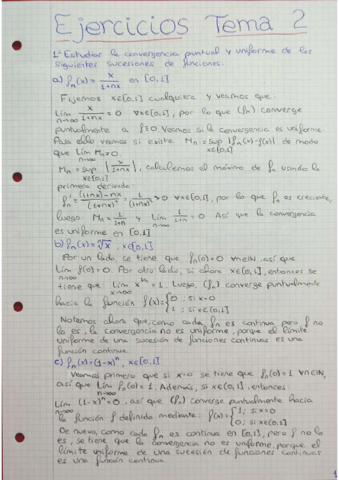 Ejercicios Tema 2
1.- Estudiar la convergencia puntual y uniforme de las
siguientes sucesiones de funciones.
a) fₙ(x) = x/(1+nx) en [0,1]
Fijemos x∈[0,1] cualquiera y veamos que:
Lím n→∞ x/(1+nx) = 0 ∀x∈[0,1], por lo que (fₙ) converge
puntualmente a f≡0. Veamos si la convergencia es uniforme.
Para ello veamos si existe Mₙ = sup x∈[0,1] |fₙ(x)-f(x)| de modo
que Lím n→∞ Mₙ = 0.
Mₙ = sup x∈[0,1] |x/(1+nx)|, calculemos el máximo de fₙ usando la
primera derivada:
fₙ' = ((1+nx)-nx)/(1+nx)² = 1/(1+nx)² > 0 ∀x∈[0,1], por lo que fₙ es creciente,
luego: Mₙ = 1/(1+n) y Lím n→∞ 1/(1+n) = 0 Así que la convergencia
es uniforme en [0,1]
b) fₙ(x) = ⁿ√x, x∈[0,1]
Por un lado se tiene que fₙ(0) = 0 ∀n∈ℕ, así que
Lím n→∞ fₙ(0) = 0. Por otro lado, si ahora x∈(0,1], entonces se
tiene que Lím x^(1/n) = 1. Luego, (fₙ) converge puntualmente
hacia la función f(x) = {0 ; si x=0
1 ; si x∈(0,1]
Notemos ahora que, como cada fₙ es continua pero f no
lo es, la convergencia no es uniforme, porque el límite
uniforme de una sucesión de funciones continuas es una
función continua.
c) fₙ(x) = (1-x)ⁿ, x∈[0,1]
Veamos primero que si x=0 se tiene que fₙ(0) = 1 ∀n∈ℕ,
así que Lím n→∞ fₙ(0) = 1. Además, si x∈(0,1], entonces:
Lím n→∞ (1-x)ⁿ = 0, así que (fₙ) converge puntualmente hacia
la función f definida mediante: f(x) = {1 ; si x=0
0 ; si x∈(0,1]
De nuevo, como cada fₙ es continua en [0,1], pero f no lo
es, se tiene que la convergencia no es uniforme, porque el
límite uniforme de una sucesión de funciones continuas
es una función continua.
1